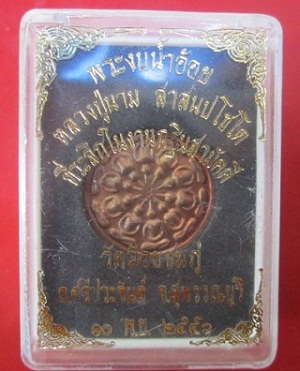 พระงบน้ำอ้อย
หลวงปู่นาม สาสนปโชโต
ที่ระลึกในงานกฐินสามัคคี
วัดน้อยชมภู่
อ.ศรีประจันต์ จ.สุพรรณบุรี
๑๐ พ.ย. ๒๕๕๖